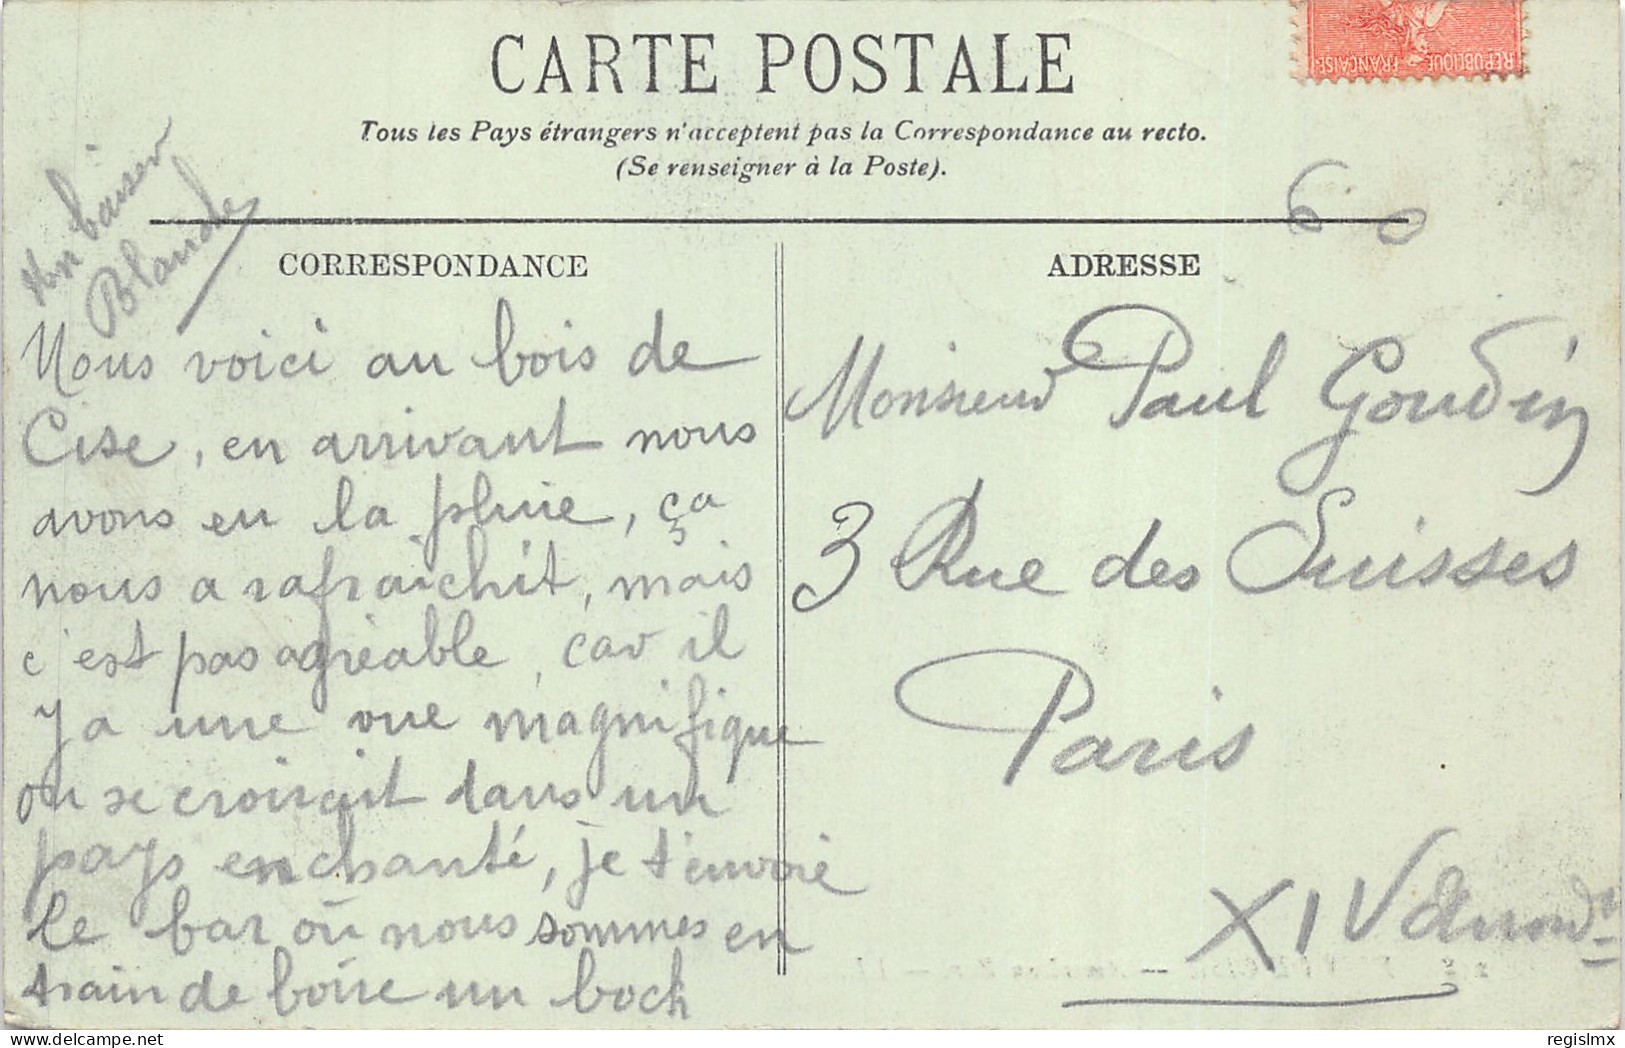 CARTE POSTALE
Tous les Pays étrangers n'acceptent pas la Correspondance au recto.
(Se renseigner à la Poste).
REPUBLIQUE FRANÇAISE
60
Un baiser
Blanche
CORRESPONDANCE
Nous voici au bois de
Cise, en arrivant nous
avons eu la pluie, ça
nous a rafraichit, mais
c'est pas agréable, car il
y a une vue magnifique
on se croirait dans un
pays enchanté, je t'envoie
le bar où nous sommes en
train de boire un bock
ADRESSE
Monsieur Paul Goudin
3 Rue des Suisses
Paris
XIV
regislmx